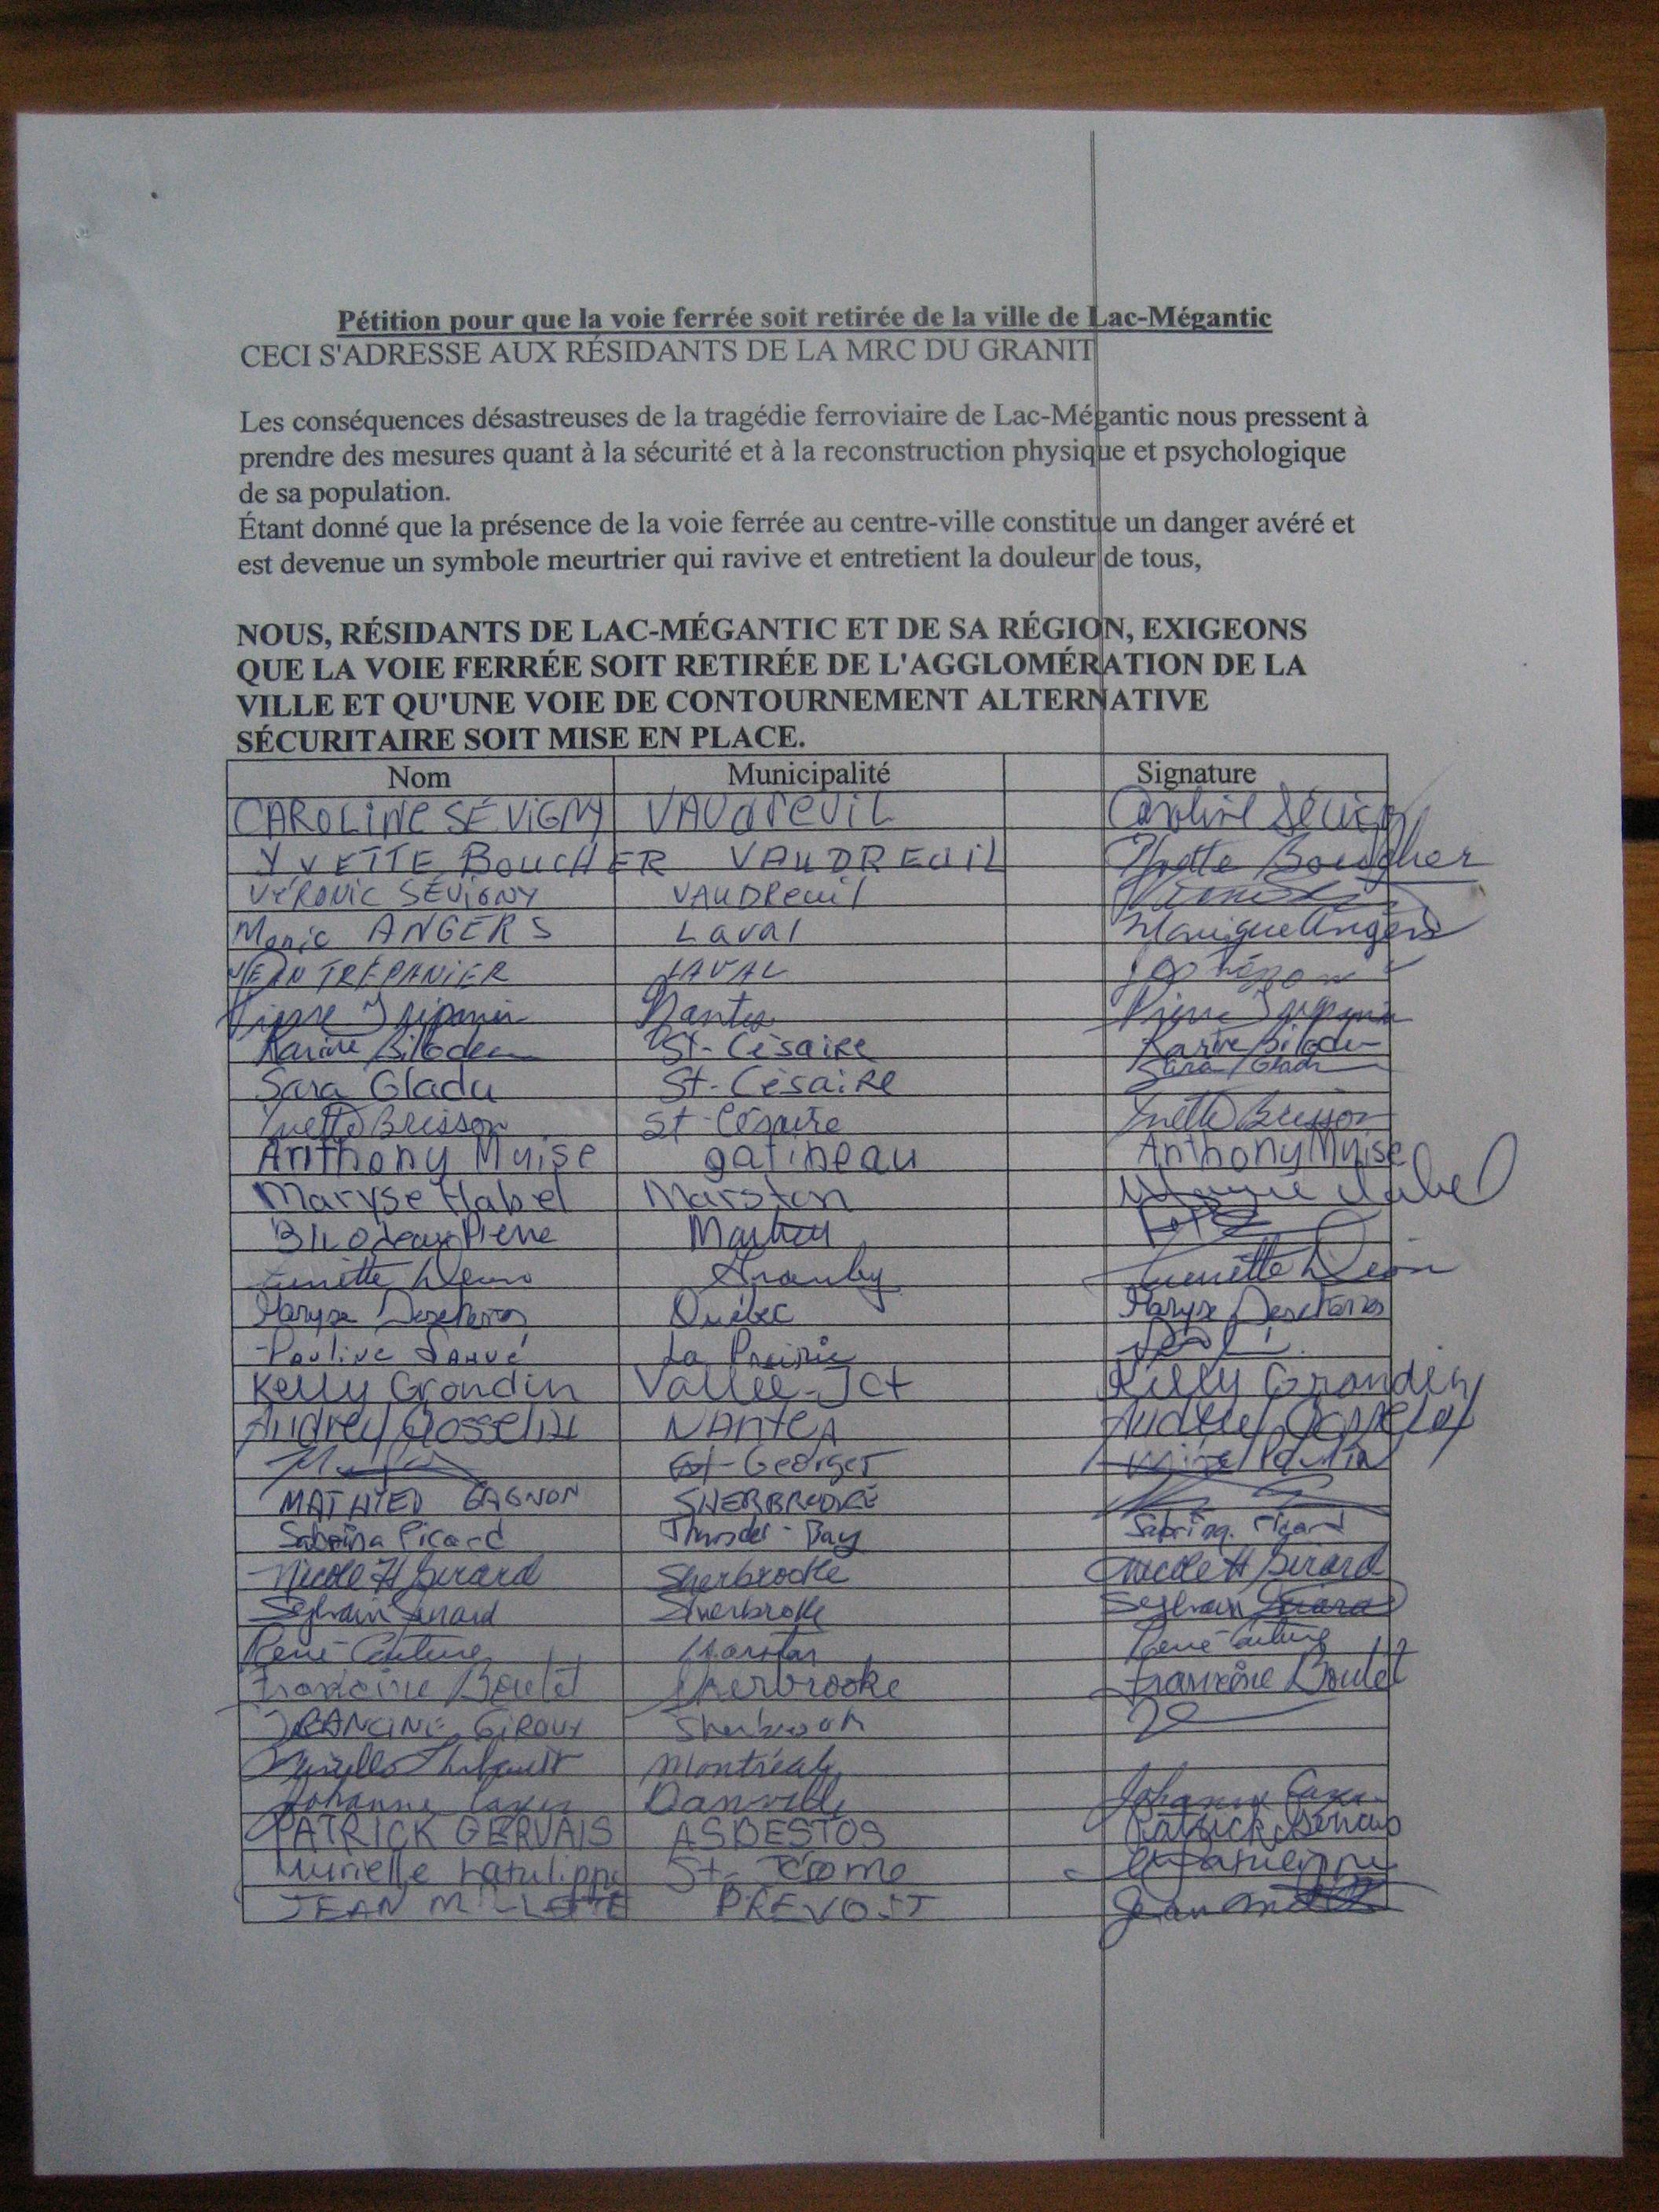 Pétition pour que la voie ferrée soit retirée de la ville de Lac-Mégantic
CECI S'ADRESSE AUX RÉSIDANTS DE LA MRC DU GRANIT
Les conséquences désastreuses de la tragédie ferroviaire de Lac-Mégantic nous pressent à
prendre des mesures quant à la sécurité et à la reconstruction physique et psychologique
de sa population.
Étant donné que la présence de la voie ferrée au centre-ville constitue un danger avéré et
est devenue un symbole meurtrier qui ravive et entretient la douleur de tous,
NOUS, RÉSIDANTS DE LAC-MÉGANTIC ET DE SA RÉGION, EXIGEONS
QUE LA VOIE FERRÉE SOIT RETIRÉE DE L'AGGLOMÉRATION DE LA
VILLE ET QU'UNE VOIE DE CONTOURNEMENT ALTERNATIVE
SÉCURITAIRE SOIT MISE EN PLACE.
Nom Municipalité Signature
CAROLINE SÉVIGNY VAUdreUIL Caroline Sévigny
YVETTE BOUCHER VAUDREUIL Yvette Boucher
VéRONIC SÉVIGNY VAUDReuil
Monic ANGERS Laval Monique Angers
JEAN TRÉPANIER LAVAL
Pierre Trépanier Nantes Pierre Trépanier
Karine Bilodeau St-Césaire Karine Bilodeau
Sara Gladu St-Césaire Sara Gladu
Yvette Brisson St-Césaire Yvette Brisson
Anthony Muise gatineau Anthony Muise
Maryse Habel Marston Maryse Habel
Bilodeau Pierre Marston
Granby
Maryse Deschênes Québec Maryse Deschênes
Pauline Sauvé La Prairie
Kelly Grondin Vallée-Jct Kelly Grondin
Audrey Gosselin Nantes Audrey Gosselin
St-Georges
MATHIEU GAGNON SHERBROOKE
Sabrina Picard Thunder-Bay Sabrina Picard
Nicole H Girard Sherbrooke Nicole H Girard
Sylvain Girard Sherbrooke Sylvain Girard
René Couture Marston René Couture
Françoise Boulet Sherbrooke Françoise Boulet
FRANCINE GIROUX Sherbrooke
Thibault Montréal
Johanne Danville Johanne
PATRICK GERVAIS ASBESTOS Patrick Gervais
Murielle Latulippe St-Jérôme Latulippe
JEAN MILLETTE PRÉVOST Jean Millette